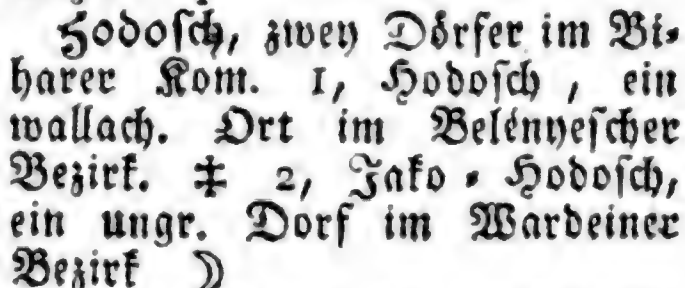 Hodosch, zwey Dörfer im Bi-
harer Kom. 1, Hodosch, ein
wallach. Ort im Belényescher
Bezirk. ‡ 2, Jako-Hodosch,
ein ungr. Dorf im Wardeiner
Bezirk ☽